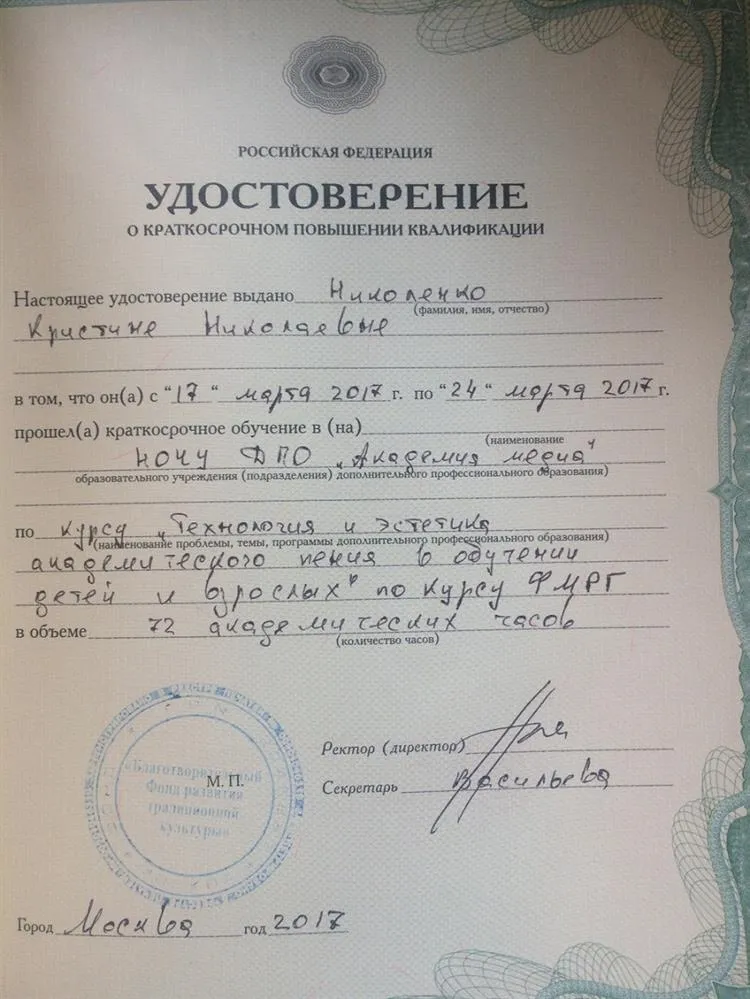 РОССИЙСКАЯ ФЕДЕРАЦИЯ
УДОСТОВЕРЕНИЕ
О КРАТКОСРОЧНОМ ПОВЫШЕНИИ КВАЛИФИКАЦИИ
Настоящее удостоверение выдано Николенко
(фамилия, имя, отчество)
Кристине Николаевне
в том, что он(а) с "17" марта 2017 г. по "24" марта 2017 г.
прошел(а) краткосрочное обучение в (на)
(наименование
НОЧУ ДПО „Академия медиа"
образовательного учреждения (подразделения) дополнительного профессионального образования)
по курсу „Технология и эстетика
(наименование проблемы, темы, программы дополнительного профессионального образования)
академического пения в обучении
детей и взрослых" по курсу ФМРГ
в объеме 72 академических часов
(количество часов)
Ректор (директор)
«Благотворительный
М. П.
Фонд развития
традиционной
культуры»
Секретарь Васильева
Город Москва год 2017